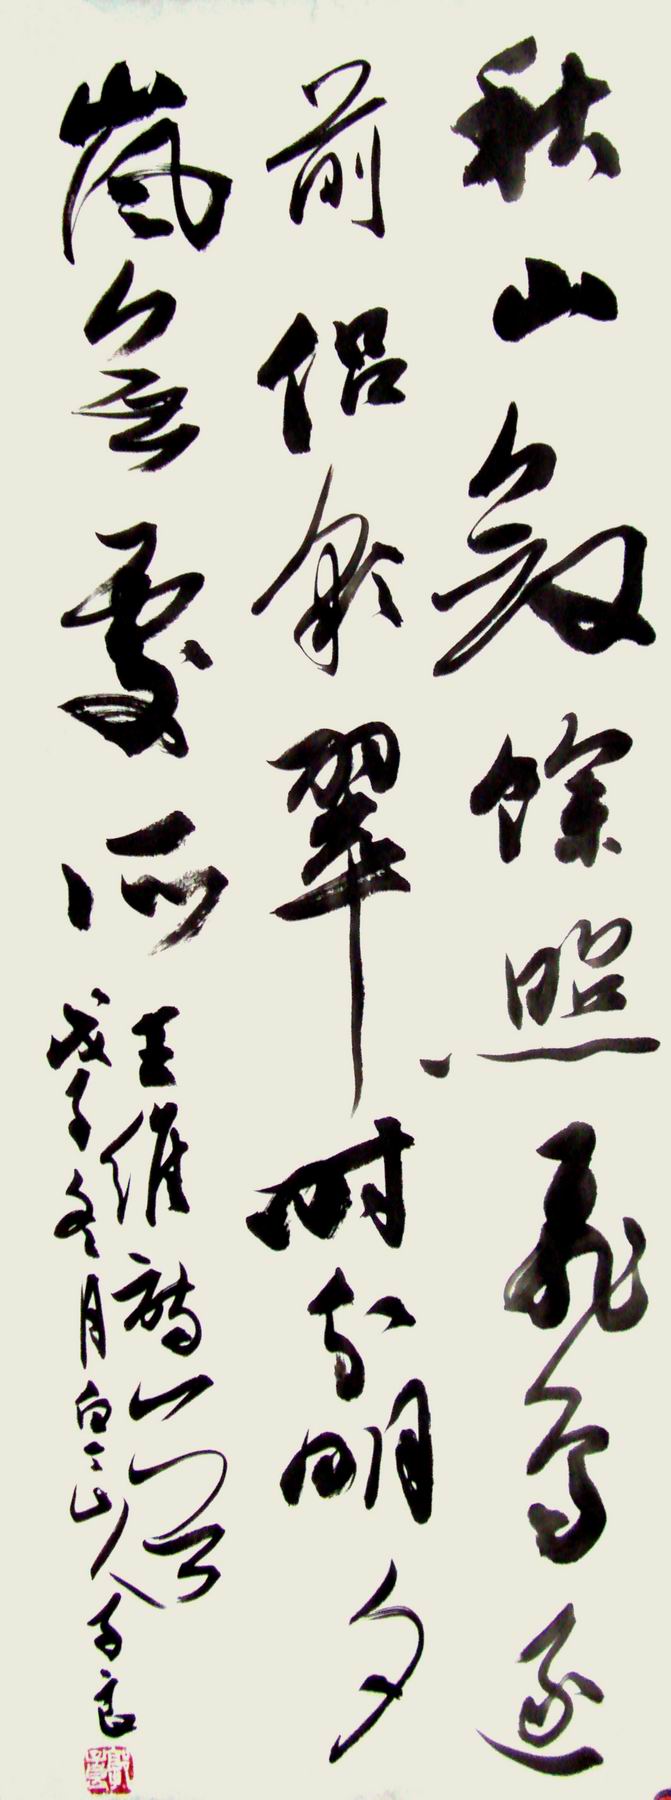 秋山斂餘照飛鳥逐
前侶彩翠時分明夕
嵐無處所
王維詩一首
戊子冬月白雲山人子良